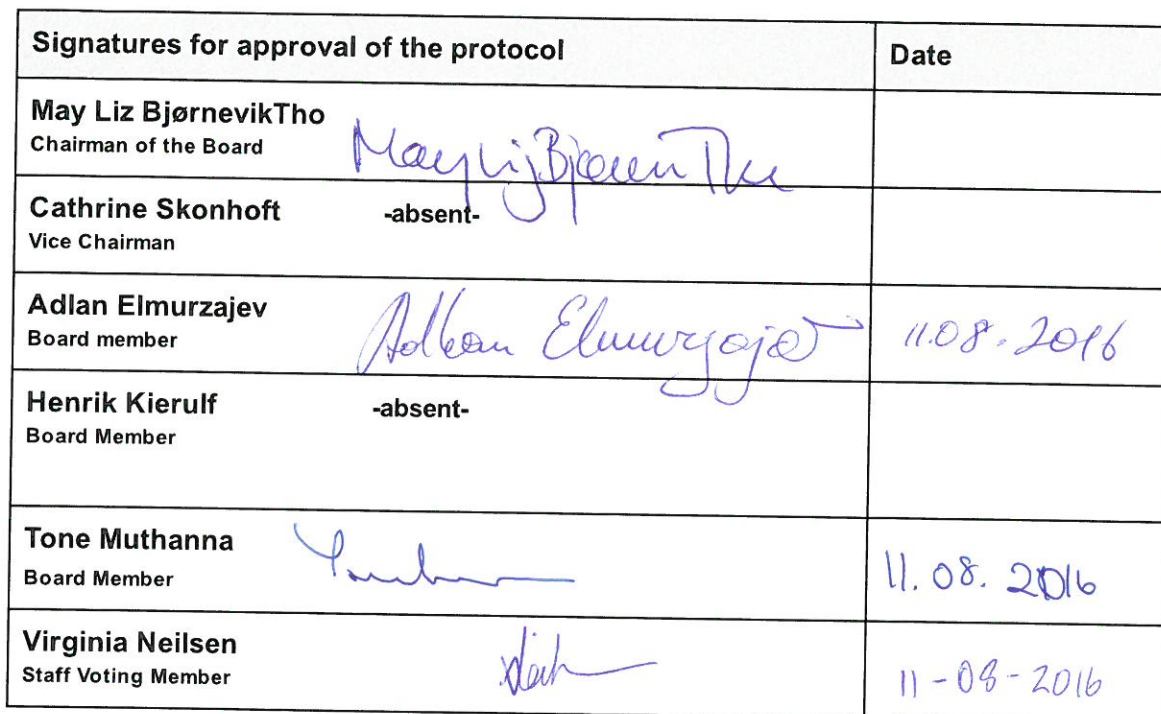 Signatures for approval of the protocol Date
May Liz BjørnevikTho
Chairman of the Board
Cathrine Skonhoft -absent-
Vice Chairman
Adlan Elmurzajev
Board member
Adlan Elmurzajev 11.08.2016
Henrik Kierulf -absent-
Board Member
Tone Muthanna
Board Member 11.08.2016
Virginia Neilsen
Staff Voting Member 11-08-2016